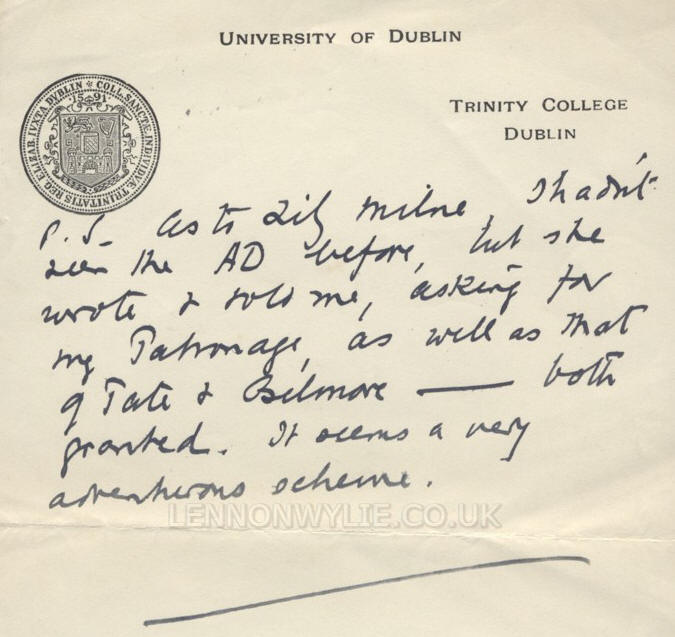 UNIVERSITY OF DUBLIN
TRINITY COLLEGE
DUBLIN
COLL. SANCTÆ. INDIVIDUÆ. TRINITATIS REG. ELIZAB. IVXTA DVBLIN
1591
P.S. As to Lily Milne, I hadn't
seen the AD before, but she
wrote & told me, asking for
my Patronage, as well as that
of Tate & Gilmore — both
granted. It seems a very
adventurous scheme.
LENNONWYLIE.CO.UK